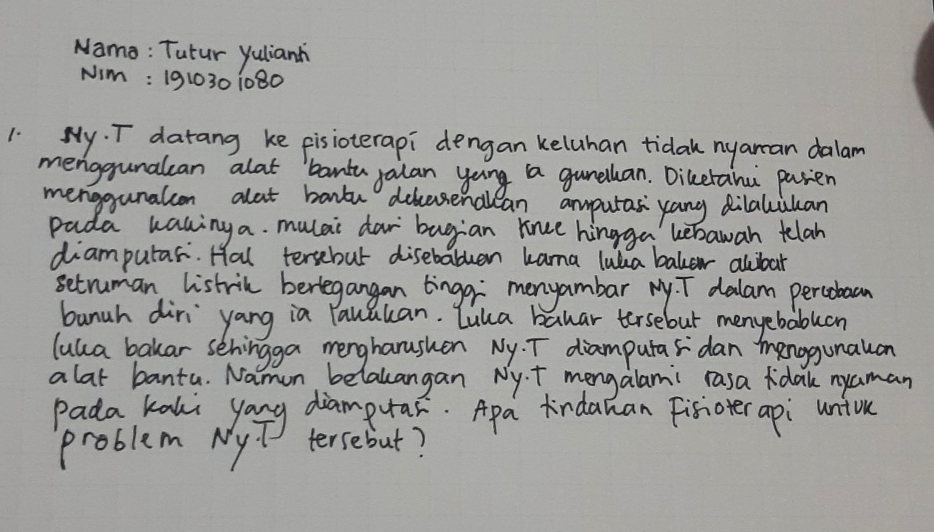 Nama : Tutur Yulianti
Nim : 1910301080
1. Ny.T datang ke fisioterapi dengan keluhan tidak nyaman dalam
menggunakan alat bantu jalan yang ia gunakan. Diketahui pasien
menggunakan alat bantu dikarenakan amputasi yang dilakukan
pada kakinya. mulai dari bagian knee hingga kebawah telah
diamputasi. Hal tersebut disebabkan karna luka bakar akibat
setruman listrik bertegangan tinggi menyambar Ny.T dalam percobaan
bunuh diri yang ia lakukan. Luka bakar tersebut menyebabkan
luka bakar sehingga mengharuskan Ny.T diamputasi dan menggunakan
alat bantu. Namun belakangan Ny.T mengalami rasa tidak nyaman
pada kaki yang diamputasi. Apa tindakan fisioterapi untuk
problem Ny.T tersebut?